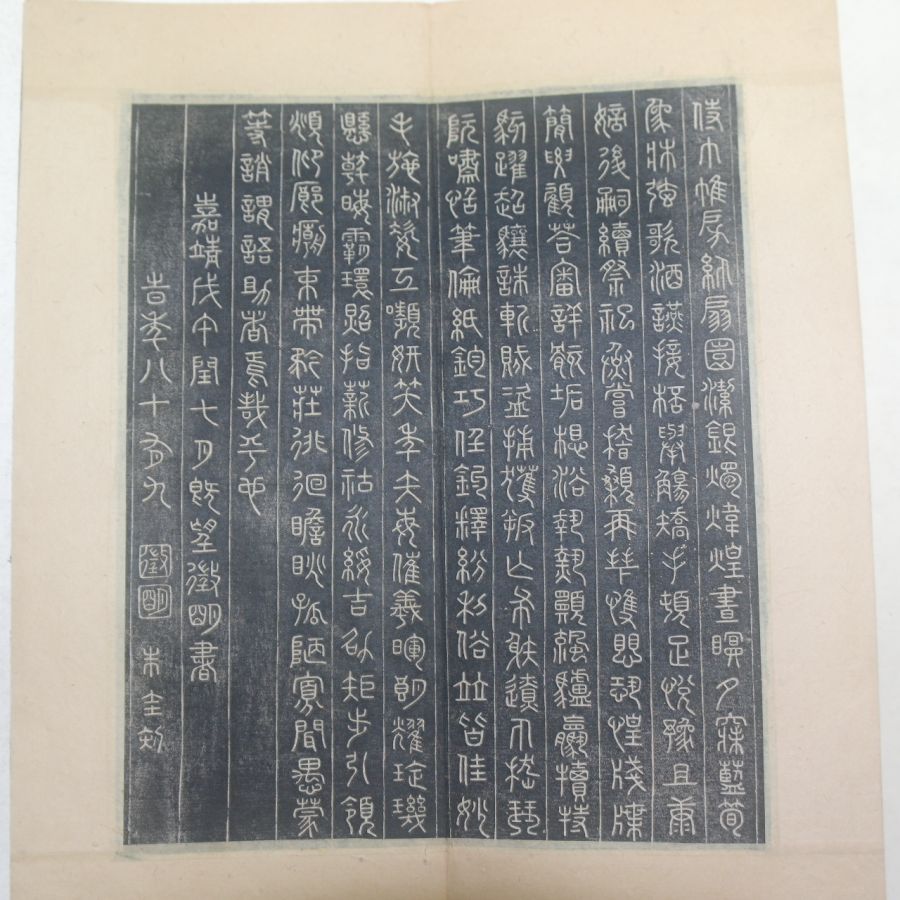 侍巾帷房紈扇圓潔銀燭煒煌晝瞑夕寐藍筍
象牀弦歌酒讌接杯舉觴矯手頓足悅豫且康
嫡後嗣續祭祀蒸嘗稽顙再拜悚懼恐惶牋牒
簡要顧答審詳骸垢想浴執熱願涼驢騾犢特
駭躍超驤誅斬賊盜捕獲叛亡布射遼丸嵇琴
阮嘯恬筆倫紙鈞巧任釣釋紛利俗並皆佳妙
毛施淑姿工顰妍笑年矢每催羲暉朗耀旋璣
懸斡晦魄環照指薪修祜永綏吉劭矩步引領
俯仰廊廟束帶矜莊徘徊瞻眺孤陋寡聞愚蒙
等誚謂語助者焉哉乎也
嘉靖戊午閏七月既望徵明書
旹年八十有九 徵明 朱圭刻